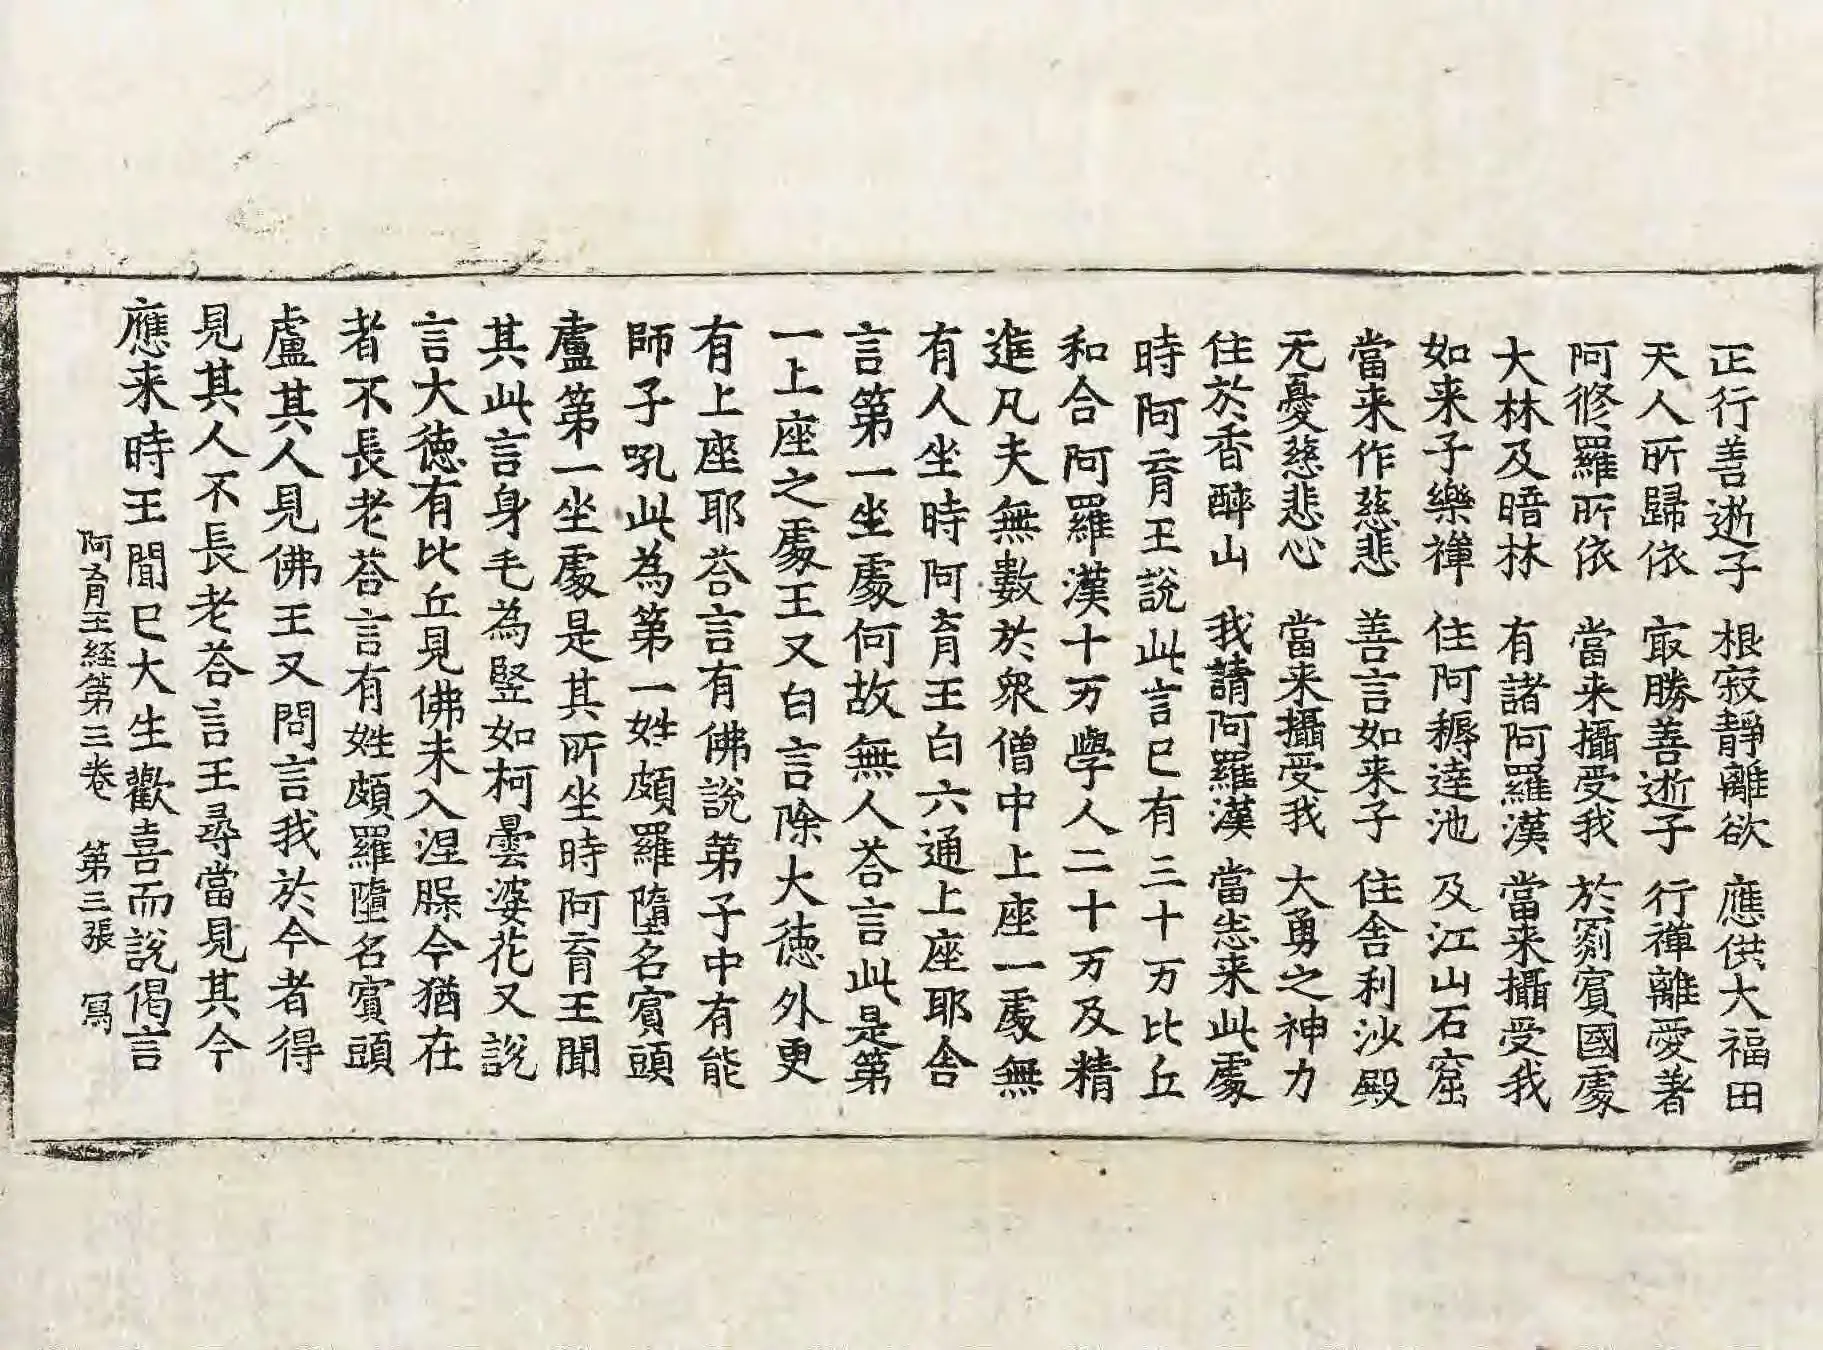 正行善逝子　根寂静離欲　應供大福田
天人所歸依　㝡勝善逝子　行禅離愛著
阿修羅所依　當来攝受我　於罽賔國䖏
大林及暗林　有諸阿羅漢　當来攝受我
如来子樂禅　住阿耨達池　及江山石窟
當来作慈悲　善言如来子　住舎利沙殿
无憂慈悲心　當来攝受我　大勇之神力
住於香醉山　我請阿羅漢　當悉来此䖏
時阿育王說此言已有三十万比丘
和合阿羅漢十万學人二十万及精
進凡夫無數於衆僧中上座一䖏無
有人坐時阿育王白六通上座耶舎
言第一坐䖏何故無人荅言此是第
一上座之䖏王又白言除大徳外更
有上座耶荅言有佛說苐子中有能
師子吼此為第一姓頗羅墮名賔頭
盧第一坐䖏是其所坐時阿育王聞
其此言身毛為竪如柯曇婆花又說
言大徳有比丘見佛未入涅槃今猶在
者不長老荅言有姓頗羅墮名賔頭
盧其人見佛王又問言我於今者得
見其人不長老荅言王尋當見其今
應来時王聞已大生歡喜而說偈言
阿育王経第三卷　第三張　寫